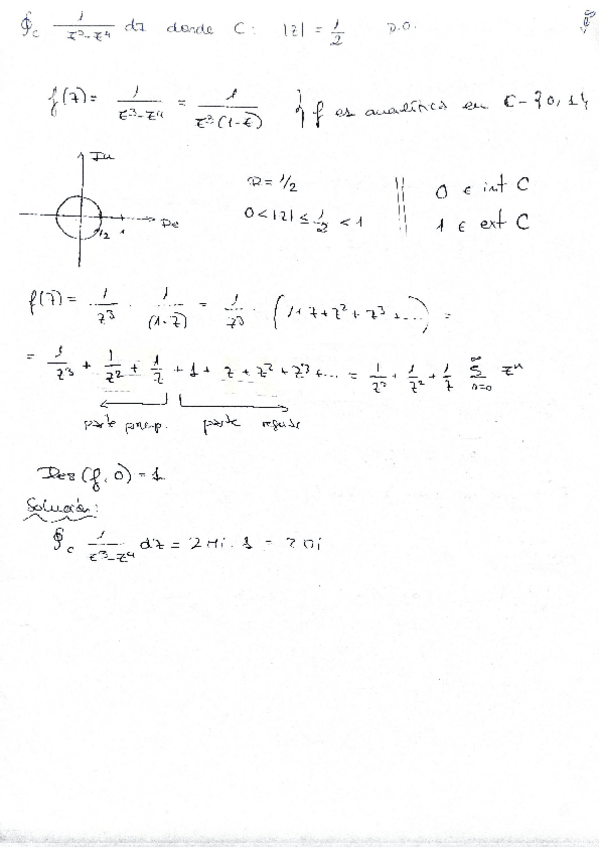 ∮c 1/(z³-z⁴) dz donde C: |z| = 1/2 D.O.
f(z) = 1/(z³-z⁴) = 1/(z³(1-z)) } f es analítica en C-{0,1}
Im
R = 1/2 || 0 ∈ int C
Re
0 < |z| ≤ 1/2 < 1 || 1 ∈ ext C
1/2 1
f(z) = 1/z³ · 1/(1-z) = 1/z³ · (1+z+z²+z³+...) =
= 1/z³ + 1/z² + 1/z + 1 + z + z² + z³ + ... = 1/z³ + 1/z² + 1/z Σ n=0 ∞ zⁿ
parte princip. parte regular
Res(f, 0) = 1
Solución:
∮c 1/(z³-z⁴) dz = 2πi · 1 = 2πi